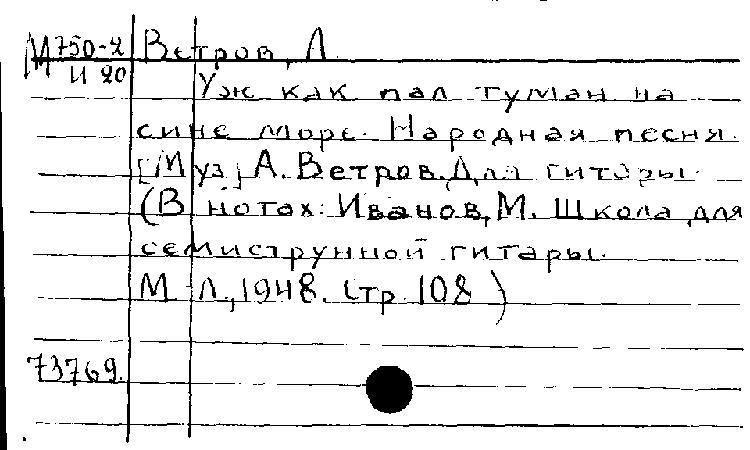 М 750-2 Ветров, А.
И 20
Уж как пал туман на
сине море. Народная песня.
[Муз] А. Ветров. Для гитары.
(В нотах: Иванов, М. Школа для
семиструнной гитары.
М Л, 1948. Стр. 108)
73769.